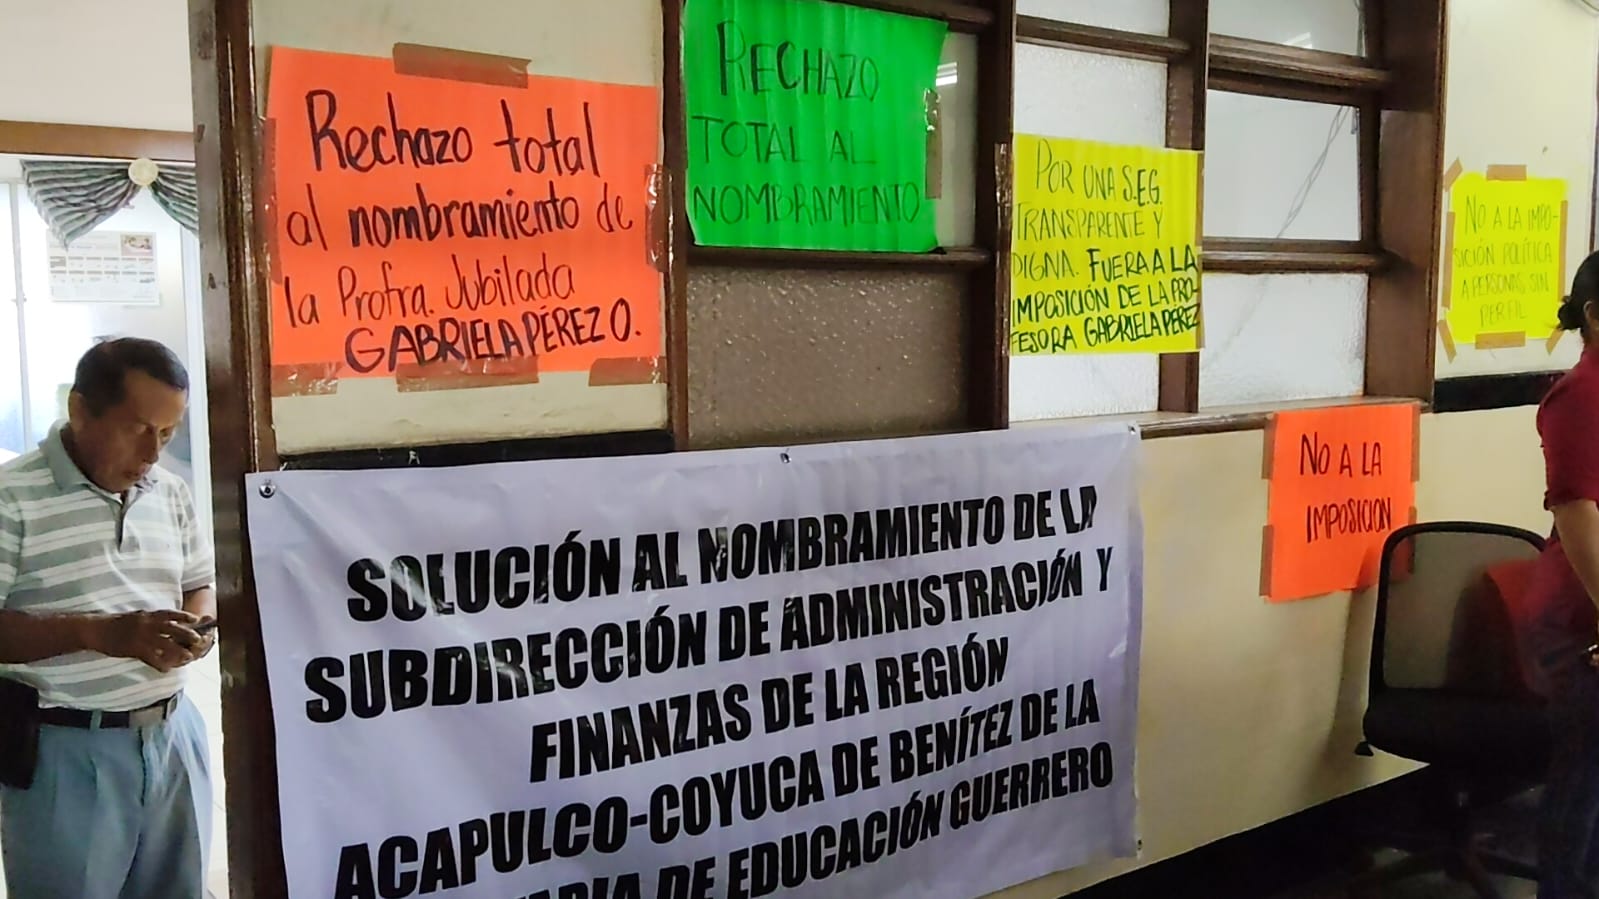 Rechazo total
al nombramiento de
la Profra. Jubilada
GABRIELA PÉREZ O.
RECHAZO
TOTAL AL
NOMBRAMIENTO
POR UNA S.E.G.
TRANSPARENTE Y
DIGNA. FUERA A LA
IMPOSICIÓN DE LA PRO-
FESORA GABRIELA PÉREZ
NO A LA IMPO-
SICIÓN POLÍTICA
A PERSONAS SIN
PERFIL
NO A LA
IMPOSICION
SOLUCIÓN AL NOMBRAMIENTO DE LA
SUBDIRECCIÓN DE ADMINISTRACIÓN Y
FINANZAS DE LA REGIÓN
ACAPULCO-COYUCA DE BENÍTEZ DE LA
DE EDUCACIÓN GUERRERO